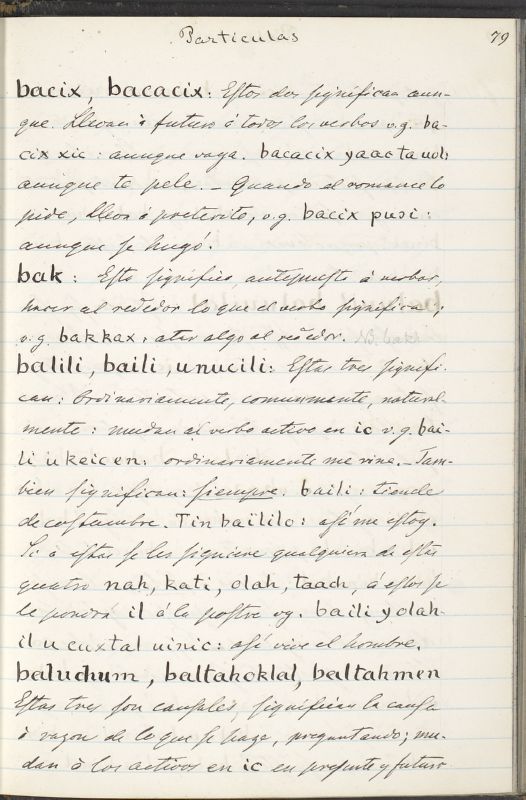 Particulas 79
bacix, bacacix: Estos dos significan aun-
que. Llevan à futuro á todos los verbos v.g. ba-
cix xic: aunque vaya. bacacix yaac ta uol:
aunque te pele. – Quando el romance lo
pide, lleva á preterito, v.g. bacix pusi:
aunque se hugó.
bak: Esto significa antepuesto á verbos,
hacer al rededor lo que el verbo significa;
v.g. bakkax, atar algo al rededor. NB. bakt
balili, baili, unucili: Estas tres signifi-
can: Ordinariamente, comunmente, natural-
mente: mudan al verbo activo en ic v.g. bai-
li u keicen: ordinariamente me riñe. – Tam-
bien significan: siempre. baili: tiende
de costumbre. Tin baililo: asi me estoy.
Si á estas se les siguiere qualquiera de estas
quatro nah, kati, olah, taach, á estos se
le pondrá il á la postre vg. baili yolah-
il u cuxtal uinic: asi vive el hombre.
baluchum, baltahoklal, baltahmen
Estas tres son causales, significan la causa
ò razon de lo que se haze, preguntando; mu-
dan á los activos en ic en presente y futuro